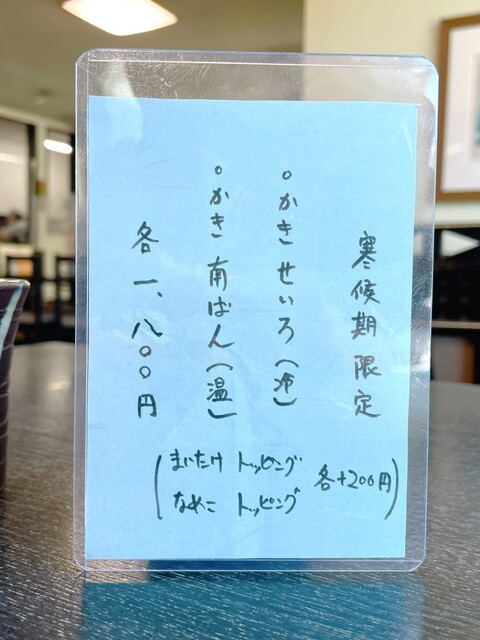 寒候期限定
。かき せいろ(冷)
。かき 南ばん(温)
各 一、八〇〇円
(まいたけ トッピング
なめこ トッピング
各+200円)